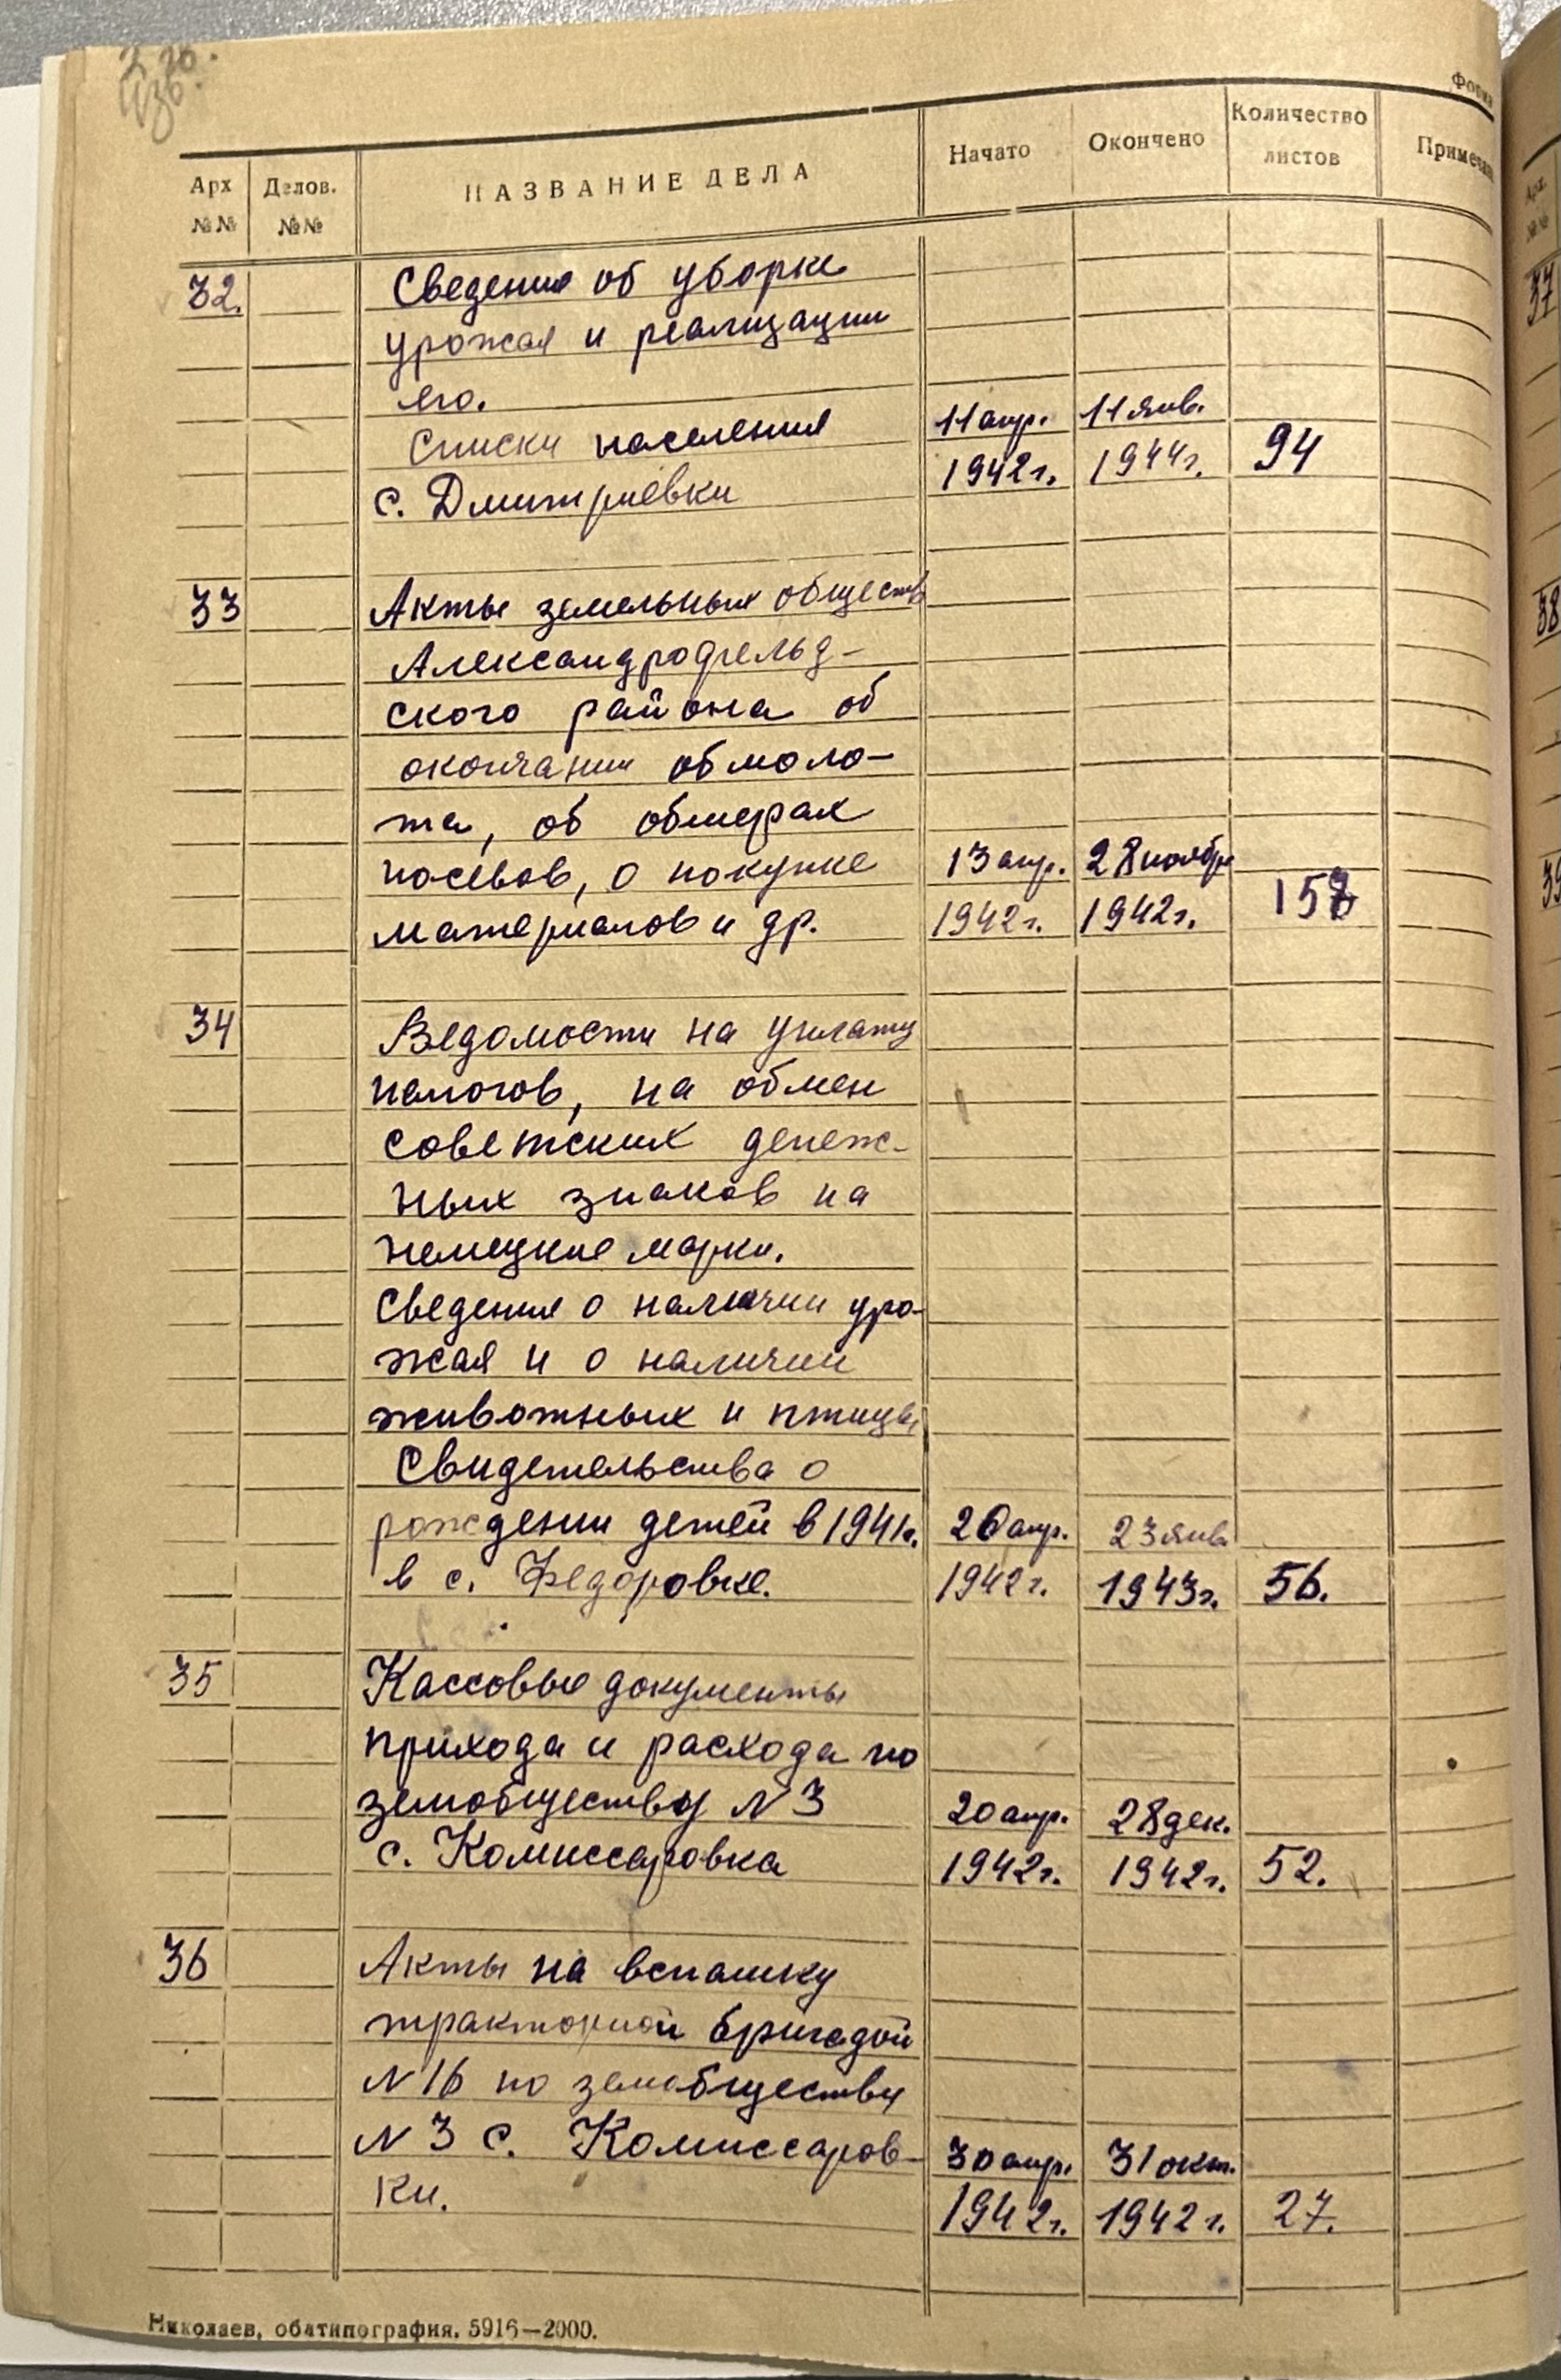 Форма
Арх №№ Делов. №№ НАЗВАНИЕ ДЕЛА Начато Окончено Количество листов Примечан
32. Сведения об уборке
урожая и реализации
его.
Списки населения 11 апр. 11 янв.
с. Дмитриевки 1942 г. 1944 г. 94
33 Акты земельных обществ
Александрофельд-
ского района об
окончании обмоло-
та, об обмерах
посевов, о покупке 13 апр. 28 ноябр
материалов и др. 1942 г. 1942 г.
34 Ведомости на уплату
налогов, на обмен
советских денеж-
ных знаков на
немецкие марки.
Сведения о наличии уро-
жая и о наличии
животных и птицы
Свидетельства о
рождении детей в 1941 г. 20 апр. 23 янв
в с. Федоровке. 1942 г. 1943 г. 56.
35 Кассовые документы
прихода и расхода по
земобществу N 3 20 апр. 28 дек.
с. Комиссаровка 1942 г. 1942 г. 52.
36 Акты на вспашку
тракторной бригадой
N 16 по земобществу
N 3 с. Комиссаров- 30 апр. 31 окт.
ки. 1942 г. 1942 г. 27.
Николаев, обатипография. 5916—2000.
37
38
39